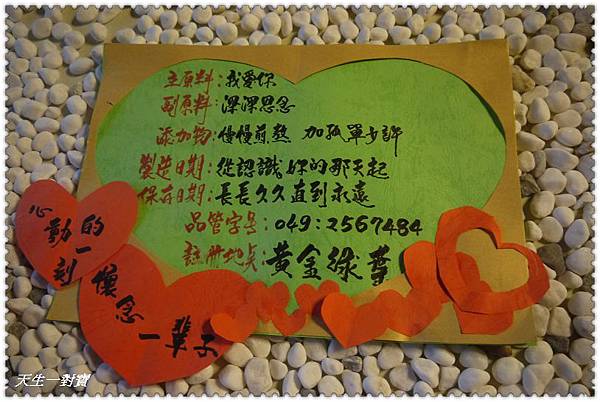 主原料：我愛你
副原料：深深思念
添加物：慢慢煎熬 加孤單少許
製造日期：從認識妳的那天起
保存日期：長長久久直到永遠
品管字号：049：2567484
註冊地点：黃金綠譽
心動的一刻
懷念一輩子
天生一對寶